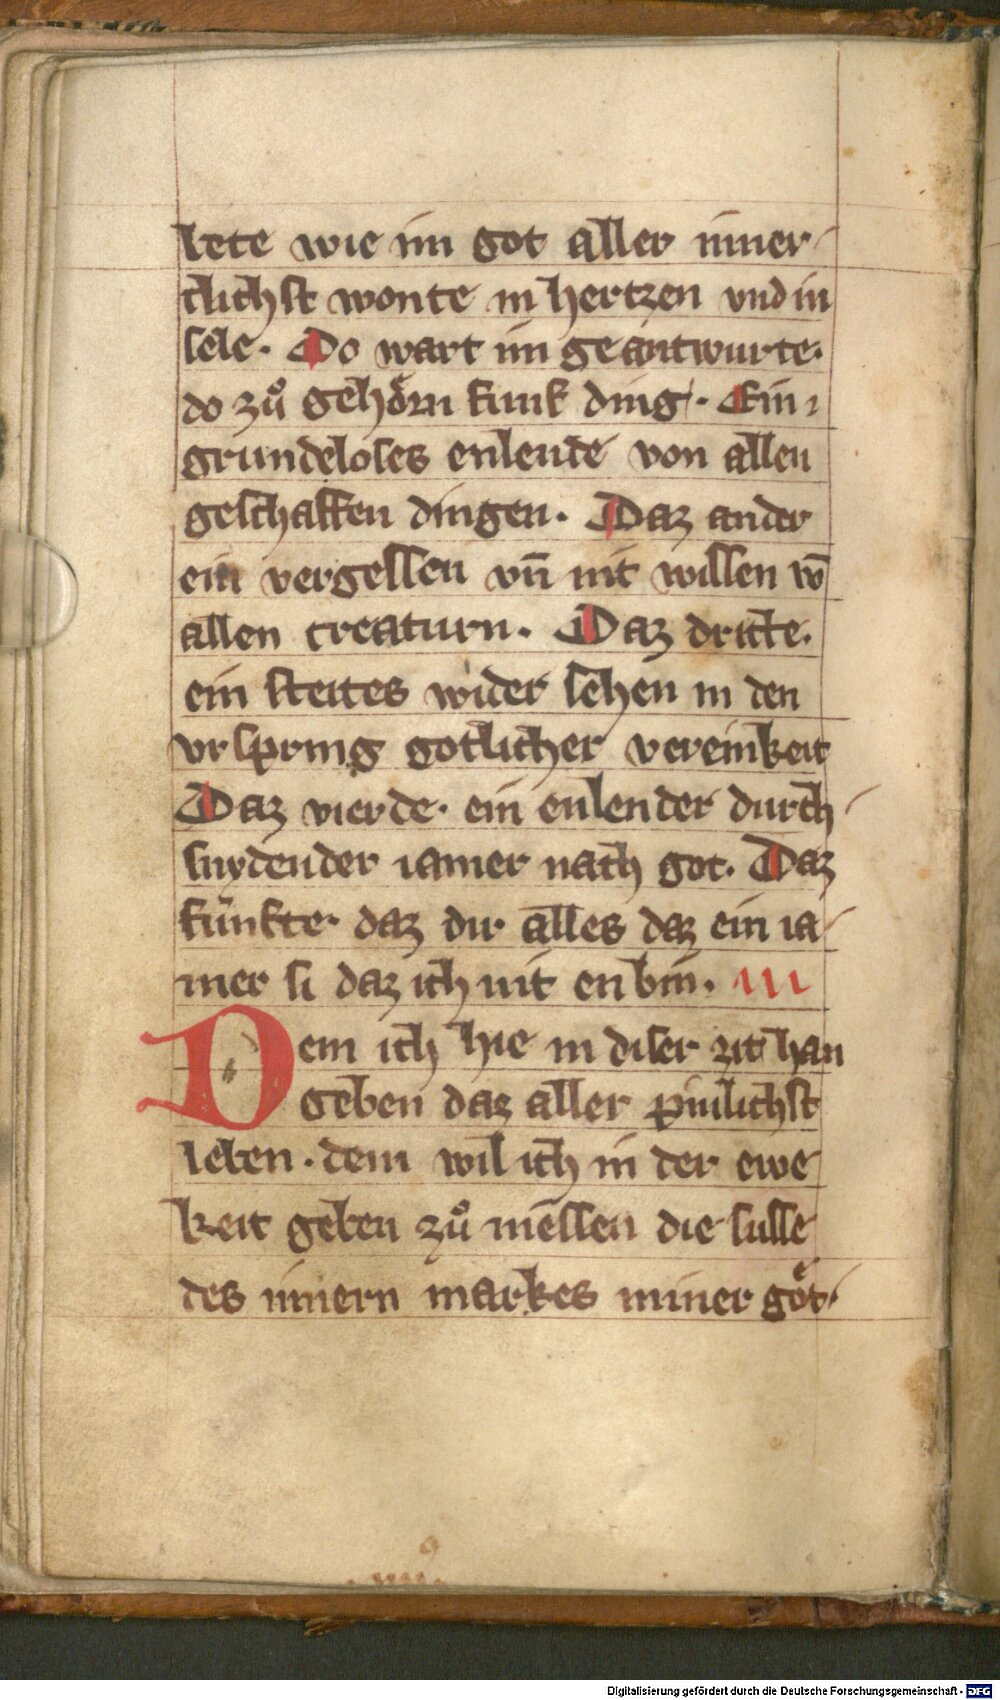 bete wie im got aller inner-
clichst wonte in hertzen vnd in
sele. Do wart im geantwurte.
do zuͦ gehoͤrn funf ding. Ein
grundeloses enlende von allen
geschaffen dingen. Daz ander
ein vergessen vn̄ nit wissen vō
allen creaturn. Daz dritte.
ein stettes wider sehen in den
vrspring gotlicher vereinkeit
Daz vierde. ein enlender durch-
snydender iamer nach got. Daz
fúnfte. daz dir alles daz ein ia-
mer si daz ich nit en bin.
Dem ich hie in diser zit han
geben daz aller pinlichst
leben. dem wil ich in der ewe
keit geben zuͦ niessen die susse
des innern markes miner goͤt-
Digitalisierung gefördert durch die Deutsche Forschungsgemeinschaft - DFG